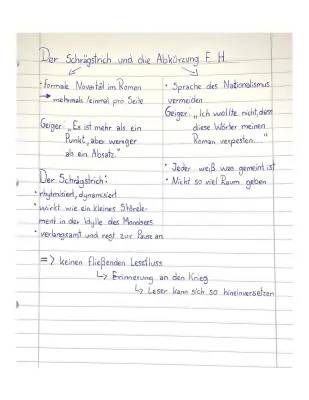 Der Schrägstrich und die Abkürzung F. H.
· formale Novität im Roman
→ mehrmals/einmal pro Seite
Geiger: „Es ist mehr als ein
Punkt, aber weniger
als ein Absatz."
· Sprache des Nationalismus
vermeiden
Geiger: „Ich wollte nicht, dass
diese Wörter meinen
Roman verpesten."
· Jeder weiß was gemeint ist
· Nicht so viel Raum geben
Der Schrägstrich:
· rhytmisiert, dynamisiert
· wirkt wie ein kleines Störele-
ment in der Idylle des Mondsees
· verlangsamt und regt zur Pause an
=> keinen fließenden Lesefluss
↳ Erinnerung an den Krieg
↳ Leser kann sich so hineinversetzen